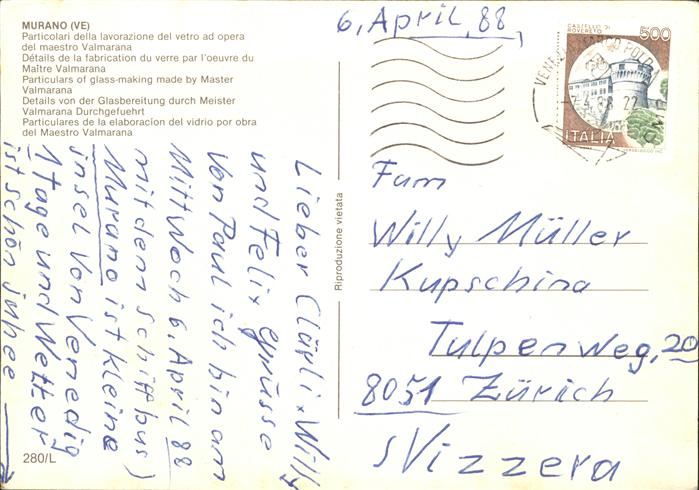 MURANO (VE)
Particolari della lavorazione del vetro ad opera
del maestro Valmarana
Détails de la fabrication du verre par l'oeuvre du
Maître Valmarana
Particulars of glass-making made by Master
Valmarana
Details von der Glasbereitung durch Meister
Valmarana Durchgefuehrt
Particulares de la elaboracion del vidrio por obra
del Maestro Valmarana
6, April, 88
CASTELLO DI
ROVERETO
500
ITALIA
Lieber
Willy
und Felix grüsse
Von Paul ich bin am
Mittwoch 6, April 88
mit dem schiff bus)
Murano ist kleine
insel Von Venedig
1 tage und Wetter
ist schön juhee
Riproduzione vietata
Fam
Willy Müller
Kupschina
Tulpenweg, 20
8051 Zürich
sVizzera
280/L